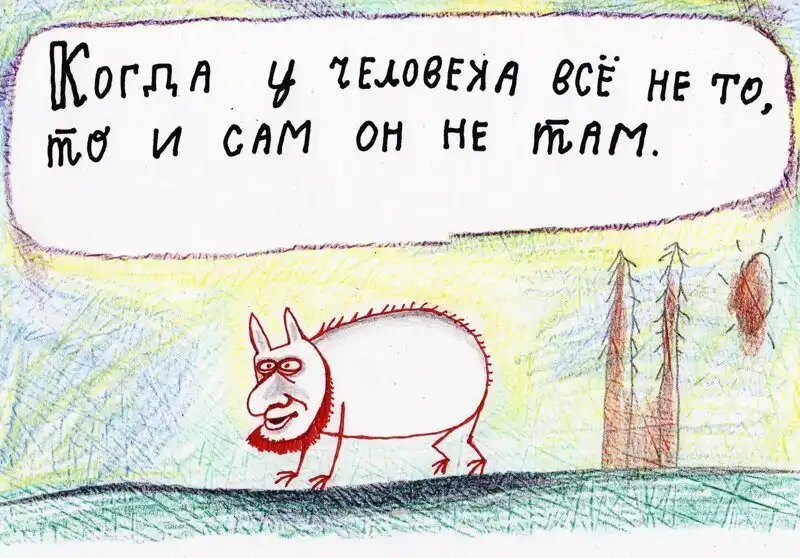 Когда у человека всё не то,
то и сам он не там.